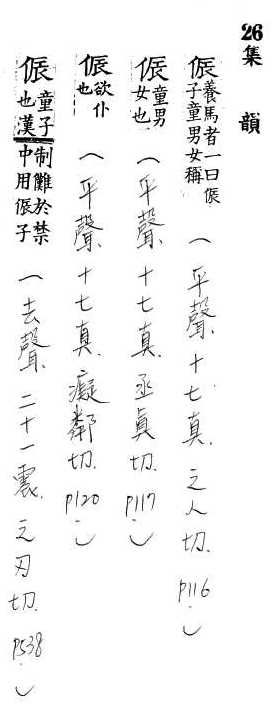 26集 韻
侲養馬者一曰侲子童男女稱（平聲十七真.之人切.P116.）
侲童男女也（平聲十七真丞真切.P117.）
侲欲仆也（平聲十七真.癡鄰切.P120.）
侲童子也漢制儺於禁中用侲子（去聲二十一震.之刃切.P538.）